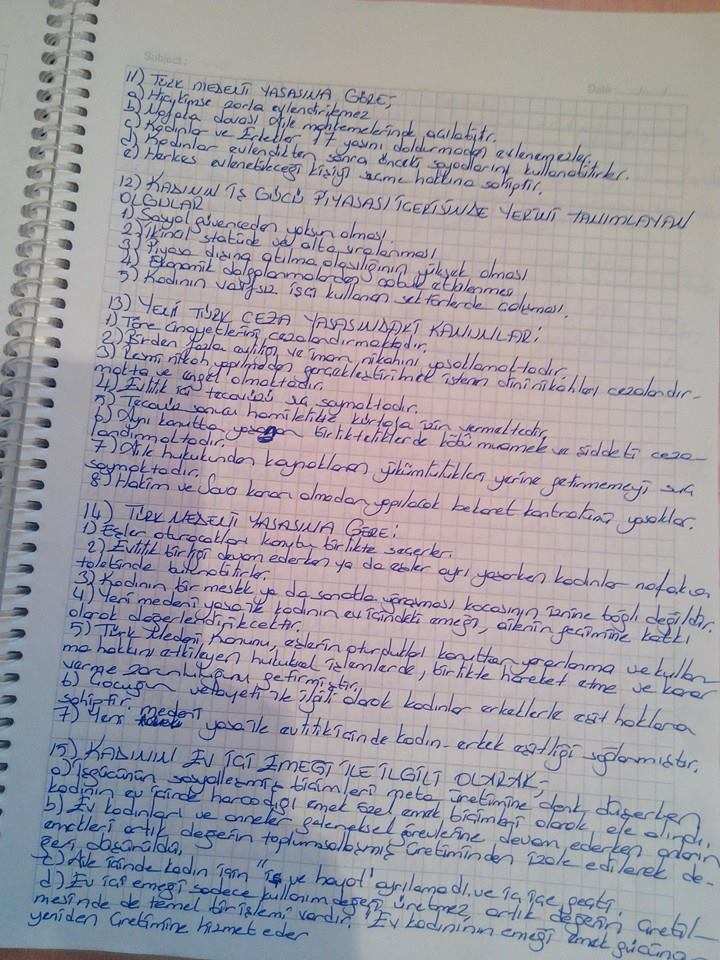 Subject:
Date
11) TÜRK MEDENİ YASASINA GÖRE;
a) Hiçkimse zorla evlendirilemez
b) Nafaka davası Aile mahkemelerinde açılabilir.
c) Kadınlar ve Erkekler 17 yaşını doldurmadan evlenemezler.
d) Kadınlar evlendikten sonra önceki soyadlarını kullanabilirler.
e) Herkes evlenebileceği kişiyi seçme hakkına sahiptir.
12) KADININ İŞ GÜCÜ PİYASASI İÇERİSİNDE YERİNİ TANIMLAYAN
OLGULAR
1) Sosyal güvenceden yoksun olması.
2) İkincil statüde ve alta sıralanması
3) Piyasa dışına atılma olasılığının yüksek olması
4) Ekonomik dalgalanmalardan çabuk etkilenmesi
5) Kadının vasıfsız işçi kullanan sektörlerde çalışması.
13) YENİ TÜRK CEZA YASASINDAKİ KANUNLAR;
1) Töre cinayetlerini cezalandırmaktadır.
2) Birden fazla evliliği ve imam nikahını yasaklamaktadır.
3) Resmi nikah yapılmadan gerçekleştirilmek istenen dini nikahları cezalandır-
makta ve engel olmaktadır.
4) Evlilik içi tecavüzü suç saymaktadır.
5) Tecavüz sonucu hamilelikte kürtaja izin vermektedir.
6) Aynı konutta yaşayan birlikteliklerde kötü muamele ve şiddeti ceza-
landırmaktadır.
7) Aile hukukundan kaynaklanan yükümlülükleri yerine getirmemeyi suç
saymaktadır.
8) Hakim ve Savcı kararı olmadan yapılacak bekaret kontrolünü yasaklar.
14) TÜRK MEDENİ YASASINA GÖRE;
1) Eşler oturacakları konutu birlikte seçerler.
2) Evlilik birliği devam ederken ya da eşler ayrı yaşarken kadınlar nafaka
talebinde bulunabilirler.
3) Kadının bir meslek ya da sanatla uğraşması kocasının iznine bağlı değildir.
4) Yeni medeni yasa ile kadının ev içindeki emeği, ailenin geçimine katkı
olarak değerlendirilecektir.
5) Türk Medeni Kanunu, eşlerin oturdukları konuttan yararlanma ve kullan-
ma hakkını etkileyen hukuksal işlemlerde, birlikte hareket etme ve karar
verme zorunluluğunu getirmiştir.
6) Çocuğun velayeti ile ilgili olarak kadınlar erkeklerle eşit haklara
sahiptir.
7) Yeni medeni yasa ile evlilik içinde kadın-erkek eşitliği sağlanmıştır.
15) KADININ EV İÇİ EMEĞİ İLE İLGİLİ OLARAK;
a) İşgücünün sosyalleşmiş biçimleri meta üretimine denk düşerken
kadının ev içinde harcadığı emek özel emek biçimleri olarak ele alındı.
b) Ev kadınları ve anneler geleneksel görevlerine devam ederken onların
emekleri artık değerin toplumsallaşmış üretiminden izole edilerek de-
ğeri düşürüldü.
c) Aile içinde kadın için "iş ve hayat" ayrılamadı ve iç içe geçti.
d) Ev içi emeği sadece kullanım değeri üretmez, artık değerin üretil-
mesinde de temel bir işlemi vardır. Ev kadınının emeği emek gücünün
yeniden üretimine hizmet eder